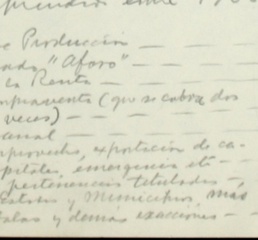 e Producción — — —
ada "Aforo" — — —
la Renta — — —
mpraventa (que se cobra dos
veces) — — — —
anal — — — —
provecho, exportación de ca-
pitales, emergencia etc —
pertenencias tituladas —
Estados y Municipios, más
alas y demás exacciones —